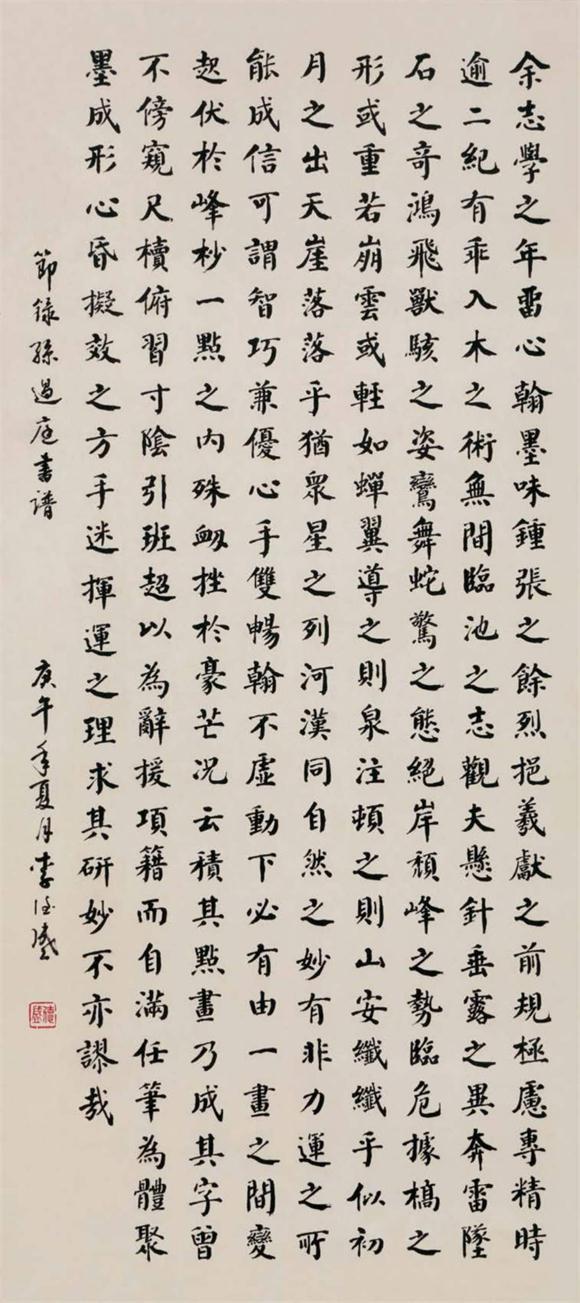 余志學之年畱心翰墨味鍾張之餘烈挹羲獻之前規極慮專精時
逾二紀有乖入木之術無間臨池之志觀夫懸針垂露之異奔雷墜
石之奇鴻飛獸駭之姿鸞舞蛇驚之態絕岸頹峰之勢臨危據槁之
形或重若崩雲或輕如蟬翼導之則泉注頓之則山安纖纖乎似初
月之出天崖落落乎猶眾星之列河漢同自然之妙有非力運之所
能成信可謂智巧兼優心手雙暢翰不虛動下必有由一畫之間變
起伏於峰杪一點之內殊衂挫於豪芒況云積其點畫乃成其字曾
不傍窺尺櫝俯習寸陰引班超以為辭援項籍而自滿任筆為體聚
墨成形心昏擬效之方手迷揮運之理求其研妙不亦謬哉
節錄孫過庭書譜 庚午年夏月李德盛